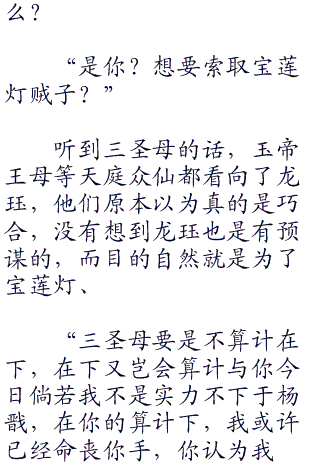 么？
“是你？想要索取宝莲
灯贼子？”
听到三圣母的话，玉帝
王母等天庭众仙都看向了龙
珏，他们原本以为真的是巧
合，没有想到龙珏也是有预
谋的，而目的自然就是为了
宝莲灯、
“三圣母要是不算计在
下，在下又岂会算计与你今
日倘若我不是实力不下于杨
戬，在你的算计下，我或许
已经命丧你手，你认为我